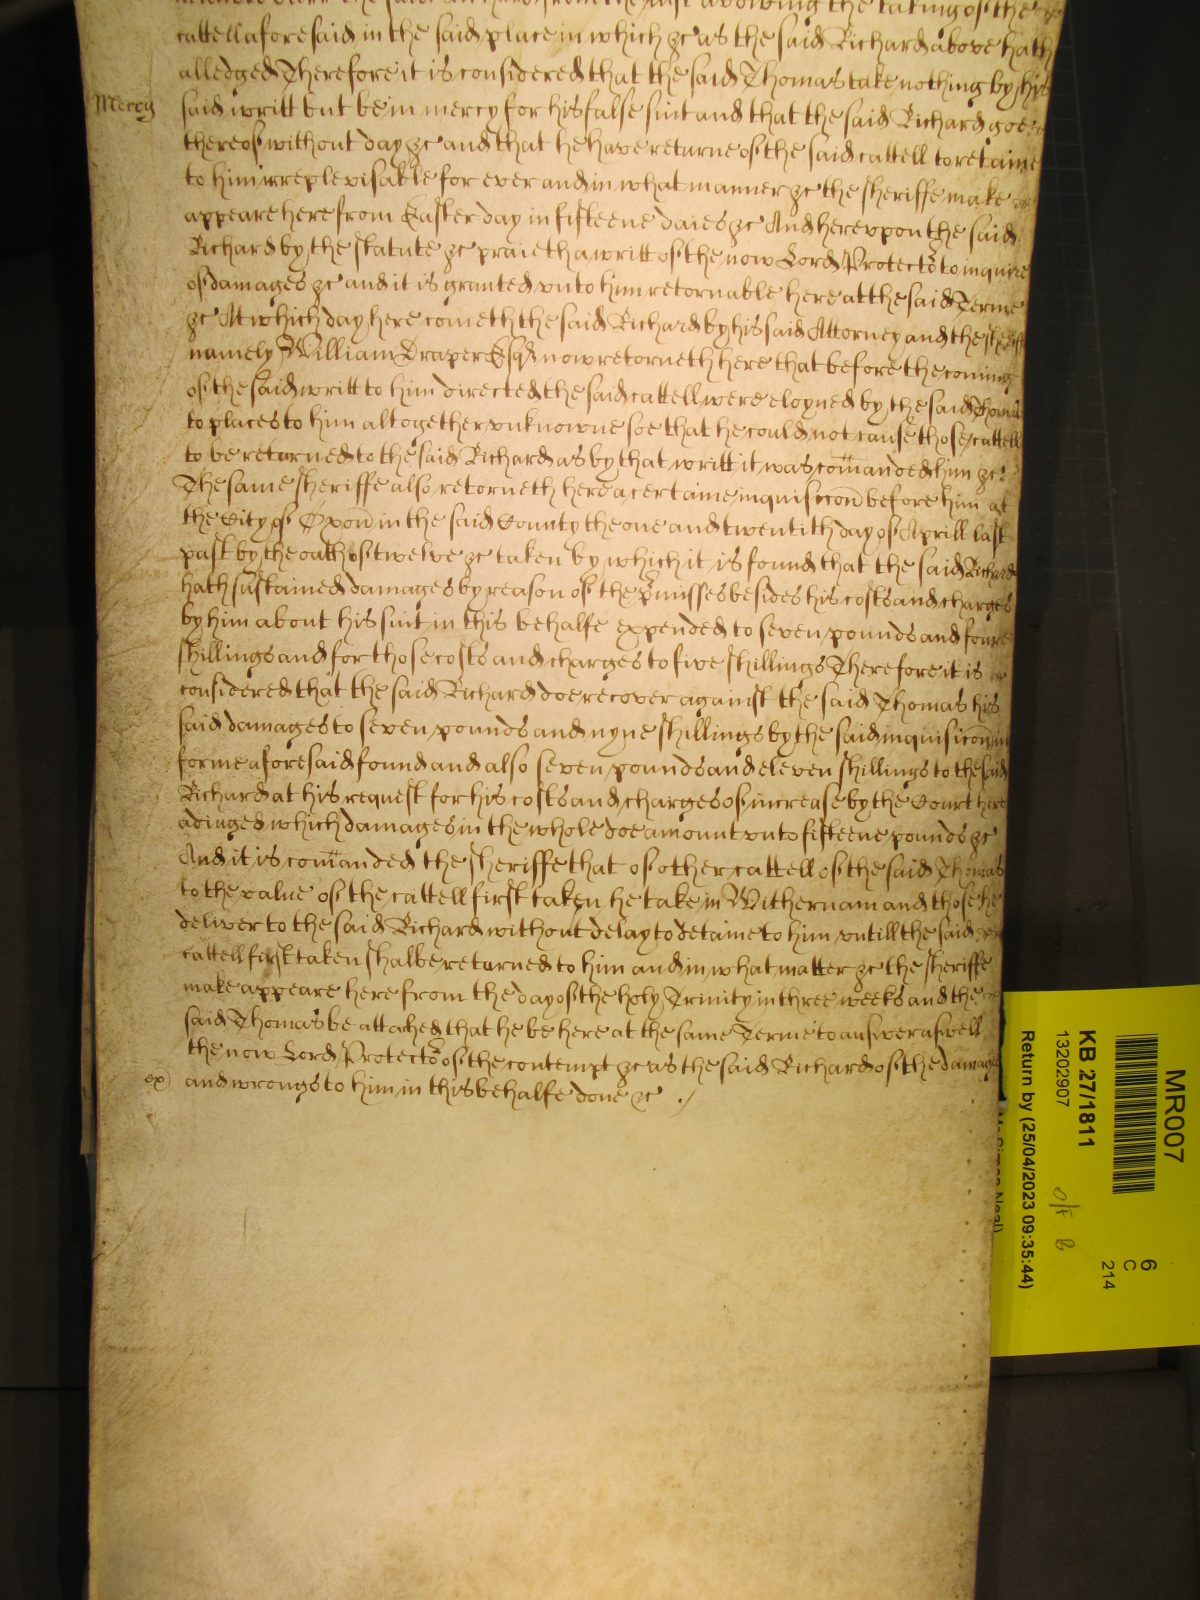 the said Richard from the just avowing the taking of the
cattell aforesaid in the said place in which &c as the said Richard above hath
alledged Therefore it is considered that the said Thomas take nothing by his
Mercy
said writt but be in mercy for his false suit and that the said Richard goe
thereof without day &c and that he have returne of the said cattell to retaine
to him irreplevisable for ever and in what manner &c the sheriffe make
appeare here from Easter day in fifteene daies &c And hereupon the said
Richard by the statute &c praieth a writt of the now Lord Protector to inquire
of damages &c and it is granted unto him retornable here at the said Terme
&c At which day here cometh the said Richard by his said Attorney and the sheriffe
namely William Draper Esqr now retorneth here that before the coming
of the said writt to him directed the said cattell were eloyned by the said Thomas
to places to him altogether unknowne soe that he could not cause those cattell
to be returned to the said Richard as by that writt it was com̄anded him &c
The same sheriffe also retorneth here a certaine inquisicon̄ before him at
the City of Oxon̄ in the said County the one and twentith day of Aprill last
past by the oath of twelve &c taken by which it is found that the said Richard
hath sustained damages by reason of the p̄misses besides his costs and charges
by him about his suit in this behalfe expended to seven pounds and foure
shillings and for those costs and charges to five shillings Therefore it is
considered that the said Richard doe recover against the said Thomas his
said damages to seven pounds and nyne shillings by the said inquisicon̄ in
forme aforesaid found and also seven pounds and eleven shillings to the said
Richard at his request for his costs and charges of increase by the Court here
adiuged which damages in the whole doe amount unto fifteene pounds &c
And it is com̄anded the sheriffe that of other cattell of the said Thomas
to the value of the cattell first taken he take in Withernam and those he
deliver to the said Richard without delay to detaine to him untill the said
cattell first taken shalbe returned to him and in what matter &c the sheriffe
make appeare here from the day of the holy Trinity in three weeks and the
said Thomas be attached that he be here at the same Terme to answer aswell
the now Lord Protector of the contempt &c as the said Richard of the damages
ex)
and wrongs to him in this behalfe done &c
MR007
KB 27/1811
13202907
Return by (25/04/2023 09:35:44)
6
C
214